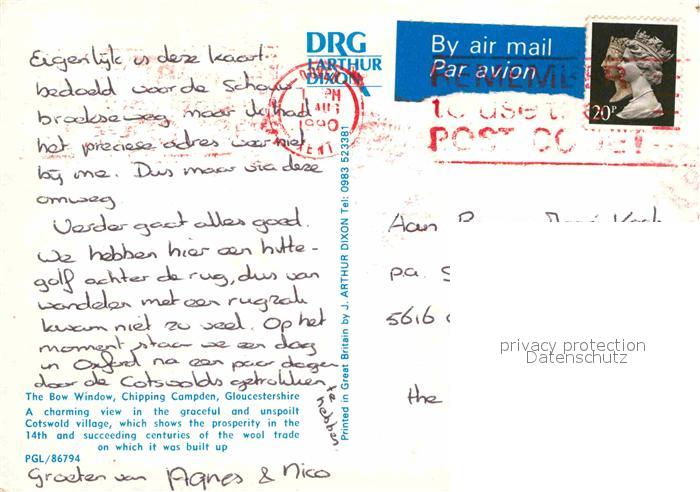 DRG
J. ARTHUR
DIXON
By air mail
Par avion
20P
PM
AUG
1990
KENT
REMEMBER
to use t
POST CODE!
Eigenlijk is deze kaart
bedoeld voor de Schouw-
broekseweg, maar ik had
het preciese adres weer niet
bij me. Dus maar via deze
omweg
Verder gaat alles goed.
We hebben hier een hitte-
golf achter de rug, dus van
wandelen met een rugzak
kwam niet zo veel. Op het
moment staan we een dag
in Oxford na een paar dagen
door de Cotswolds getrokken
te hebben.
Groeten van Agnes & Nico
Aan
p.a. S
5616
the
The Bow Window, Chipping Campden, Gloucestershire
A charming view in the graceful and unspoilt
Cotswold village, which shows the prosperity in the
14th and succeeding centuries of the wool trade
on which it was built up
PGL/86794
Printed in Great Britain by J. ARTHUR DIXON Tel: 0983 523381
privacy protection
Datenschutz